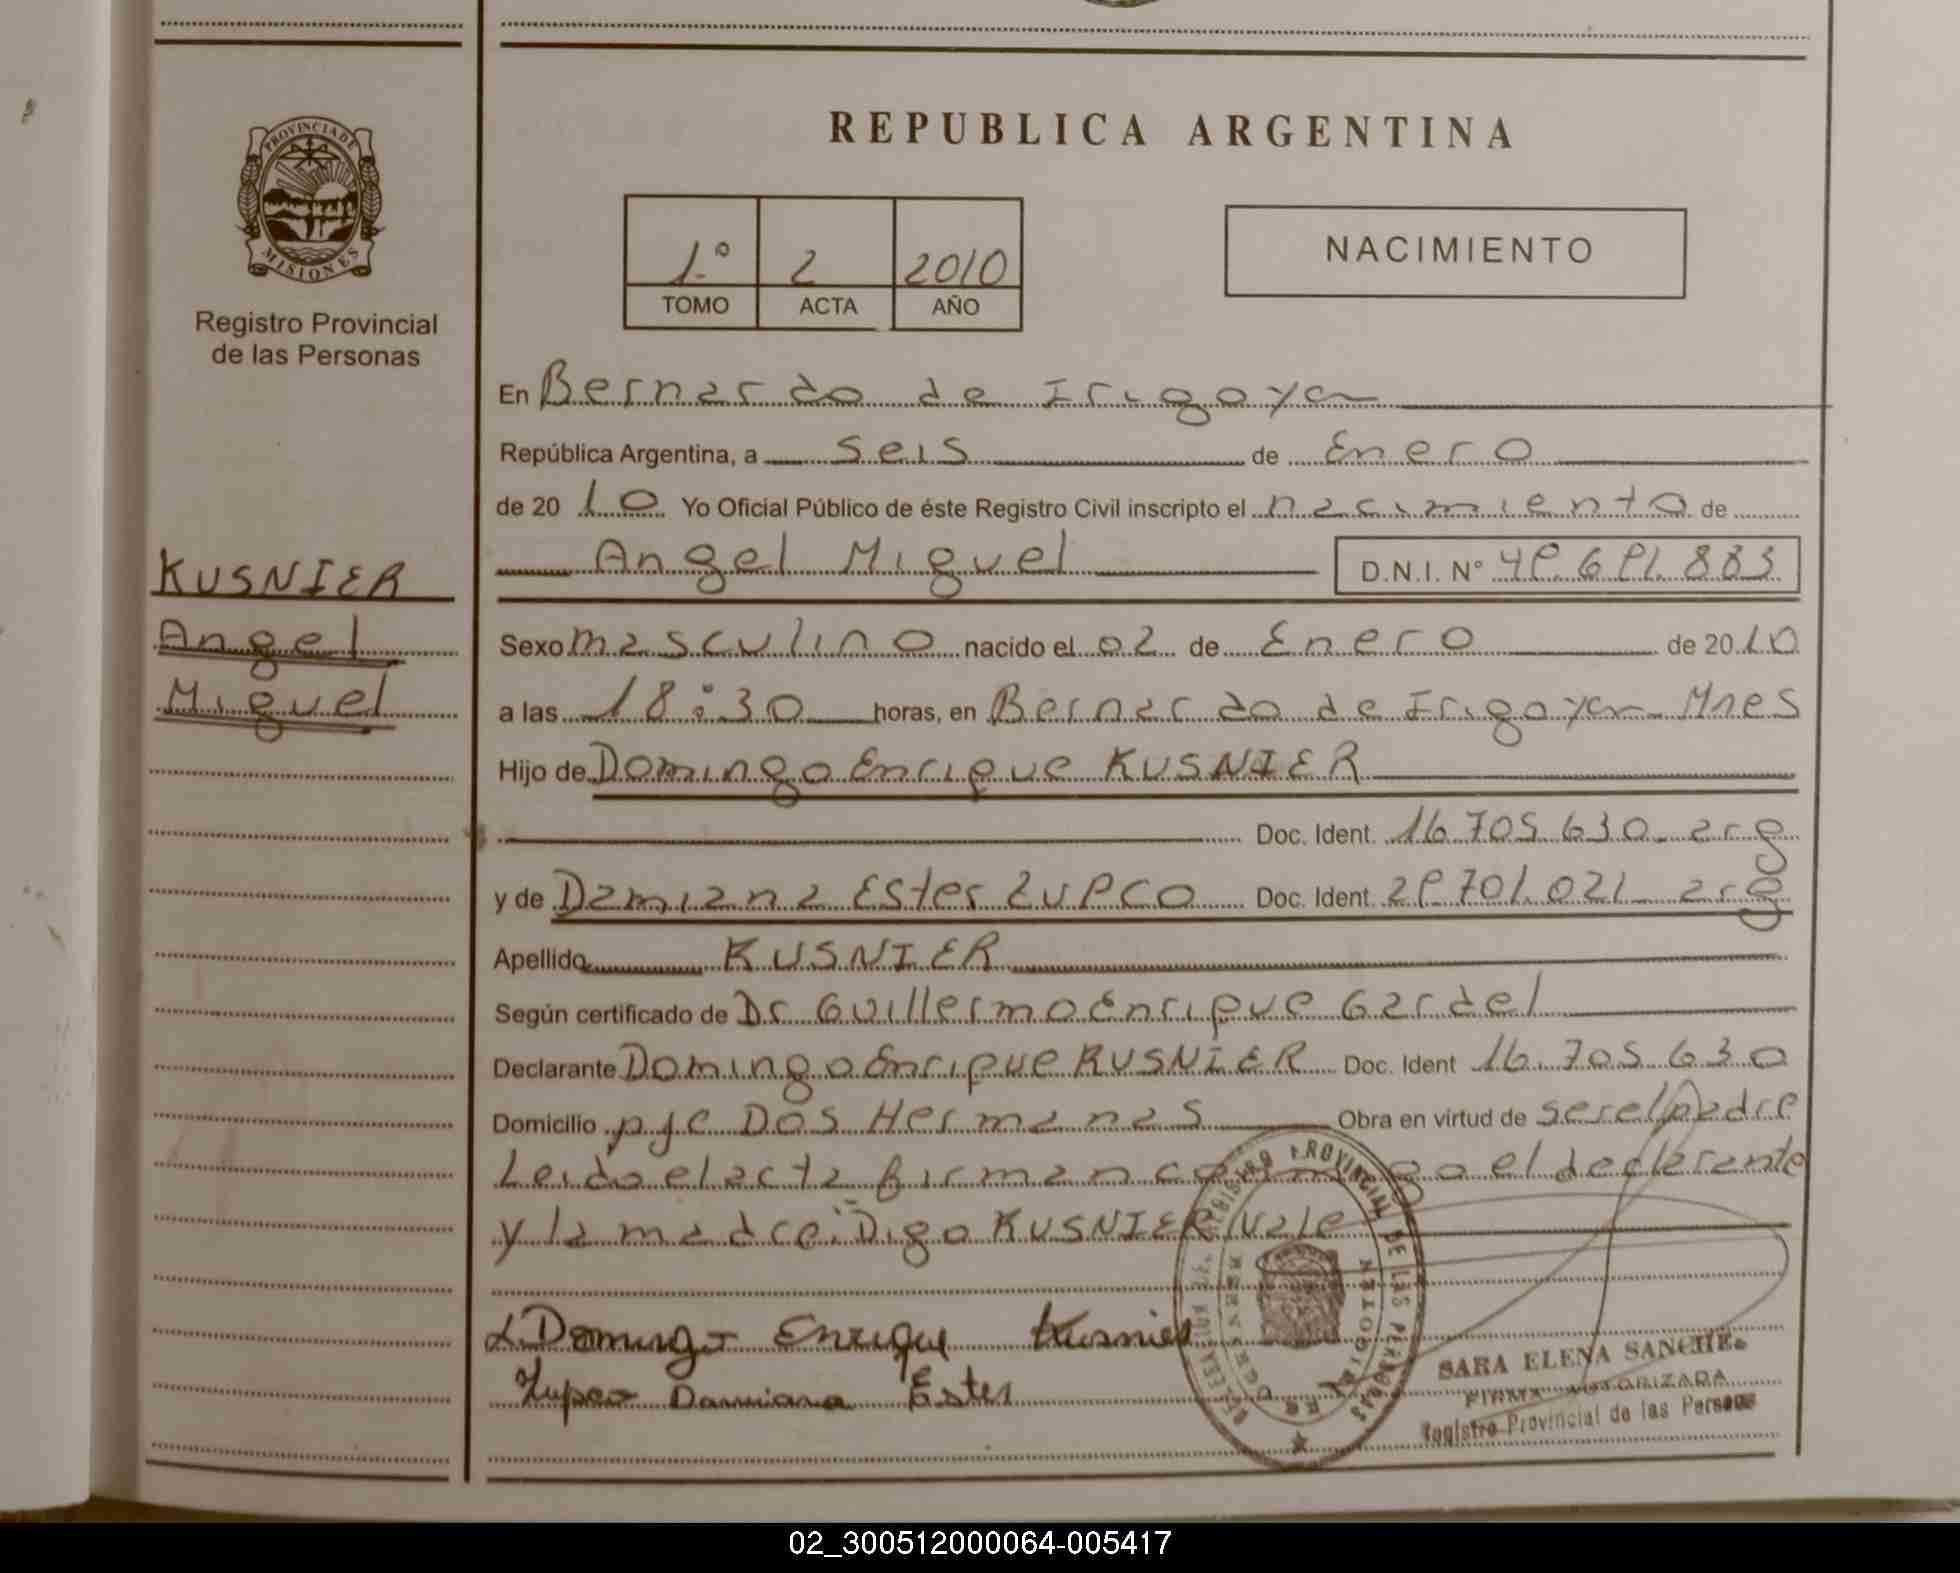 REPUBLICA ARGENTINA
PROVINCIA DE
MISIONES
Registro Provincial
de las Personas
1.º 2 2010
TOMO ACTA AÑO
NACIMIENTO
En Bernardo de Irigoyen
República Argentina, a Seis de Enero
de 20 10 Yo Oficial Público de éste Registro Civil inscripto el nacimiento de
Angel Miguel D.N.I. Nº 49.691.883
KUSNIER
Angel
Miguel
Sexo masculino nacido el 02 de Enero de 20 10
a las 18:30 horas, en Bernardo de Irigoyen - Mnes
Hijo de Domingo Enrique KUSNIER
Doc. Ident. 16.705.630 - arg
y de Damiana Ester ZUPCO Doc. Ident. 29.701.021 - arg
Apellido KUSNIER
Según certificado de Dr Guillermo Enrique Gardel
Declarante Domingo Enrique KUSNIER Doc. Ident 16.705.630
Domicilio pje Dos Hermanas Obra en virtud de ser el padre
Leido el acta firman conmigo el declarante
y la madre. Digo KUSNIER Vale
Domingo Enrique Kusnier
Zupco Damiana Ester
REGISTRO PROVINCIAL DE LAS PERSONAS
SARA ELENA SANCHEZ
FIRMA AUTORIZADA
Registro Provincial de las Personas
02_300512000064-005417